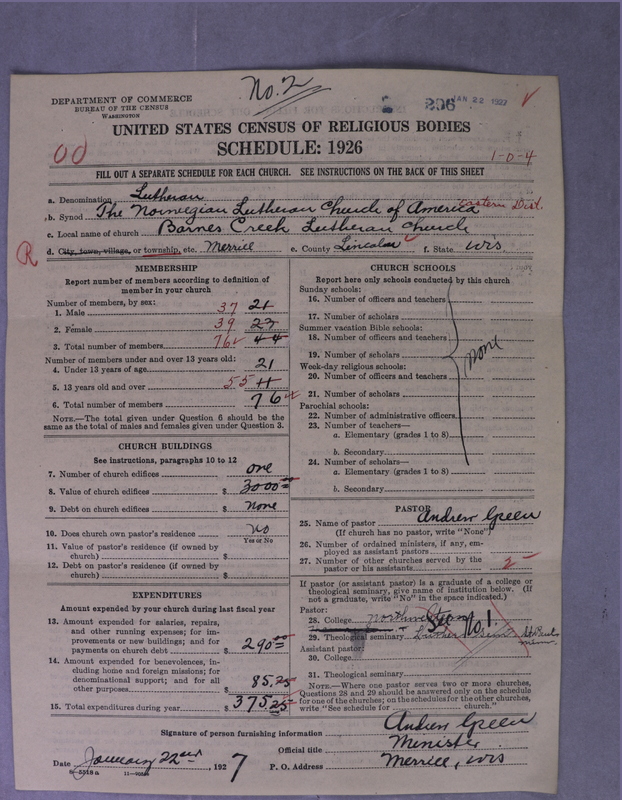 No. 2
DEPARTMENT OF COMMERCE
BUREAU OF THE CENSUS
WASHINGTON
206 JAN 22 1927
UNITED STATES CENSUS OF RELIGIOUS BODIES
SCHEDULE: 1926
1-0-4
FILL OUT A SEPARATE SCHEDULE FOR EACH CHURCH. SEE INSTRUCTIONS ON THE BACK OF THIS SHEET
a. Denomination Lutheran
b. Synod The Norwegian Lutheran Church of America Eastern Dist.
c. Local name of church Barnes Creek Lutheran Church
R d. City, town, village, or township, etc. Merrill e. County Lincoln f. State Wis
MEMBERSHIP
Report number of members according to definition of
member in your church
Number of members, by sex:
1. Male 37 21
2. Female 39 23
3. Total number of members 76 44
Number of members under and over 13 years old:
4. Under 13 years of age 21
5. 13 years old and over 55
6. Total number of members 76
NOTE.—The total given under Question 6 should be the
same as the total of males and females given under Question 3.
CHURCH BUILDINGS
See instructions, paragraphs 10 to 12
7. Number of church edifices one
8. Value of church edifices $ 3000
9. Debt on church edifices $ none
10. Does church own pastor's residence? no
Yes or No
11. Value of pastor's residence (if owned by
church) $
12. Debt on pastor's residence (if owned by
church) $
EXPENDITURES
Amount expended by your church during last fiscal year
13. Amount expended for salaries, repairs,
and other running expenses; for im-
provements or new buildings; and for
payments on church debt $ 290.00
14. Amount expended for benevolences, in-
cluding home and foreign missions; for
denominational support; and for all
other purposes $ 85.25
15. Total expenditures during year $ 375.25
CHURCH SCHOOLS
Report here only schools conducted by this church
Sunday schools:
16. Number of officers and teachers
17. Number of scholars
Summer vacation Bible schools:
18. Number of officers and teachers
19. Number of scholars
none
Week-day religious schools:
20. Number of officers and teachers
21. Number of scholars
Parochial schools:
22. Number of administrative officers
23. Number of teachers—
a. Elementary (grades 1 to 8)
b. Secondary
24. Number of scholars—
a. Elementary (grades 1 to 8)
b. Secondary
PASTOR
25. Name of pastor Andrew Green
(If church has no pastor, write "None")
26. Number of ordained ministers, if any, em-
ployed as assistant pastors
27. Number of other churches served by the
pastor or his assistants 2
If pastor (or assistant pastor) is a graduate of a college or
theological seminary, give name of institution below. (If
not a graduate, write "No" in the space indicated.)
Pastor:
28. College
No. 1
29. Theological seminary
Assistant pastor:
30. College
31. Theological seminary
NOTE.—Where one pastor serves two or more churches,
Questions 28 and 29 should be answered only on the schedule
for one of the churches; on the schedules for the other churches,
write "See schedule for church."
Signature of person furnishing information Andrew Green
Official title Minister
Date January 22nd, 1927 P. O. Address Merrill, Wis
8-5518 a